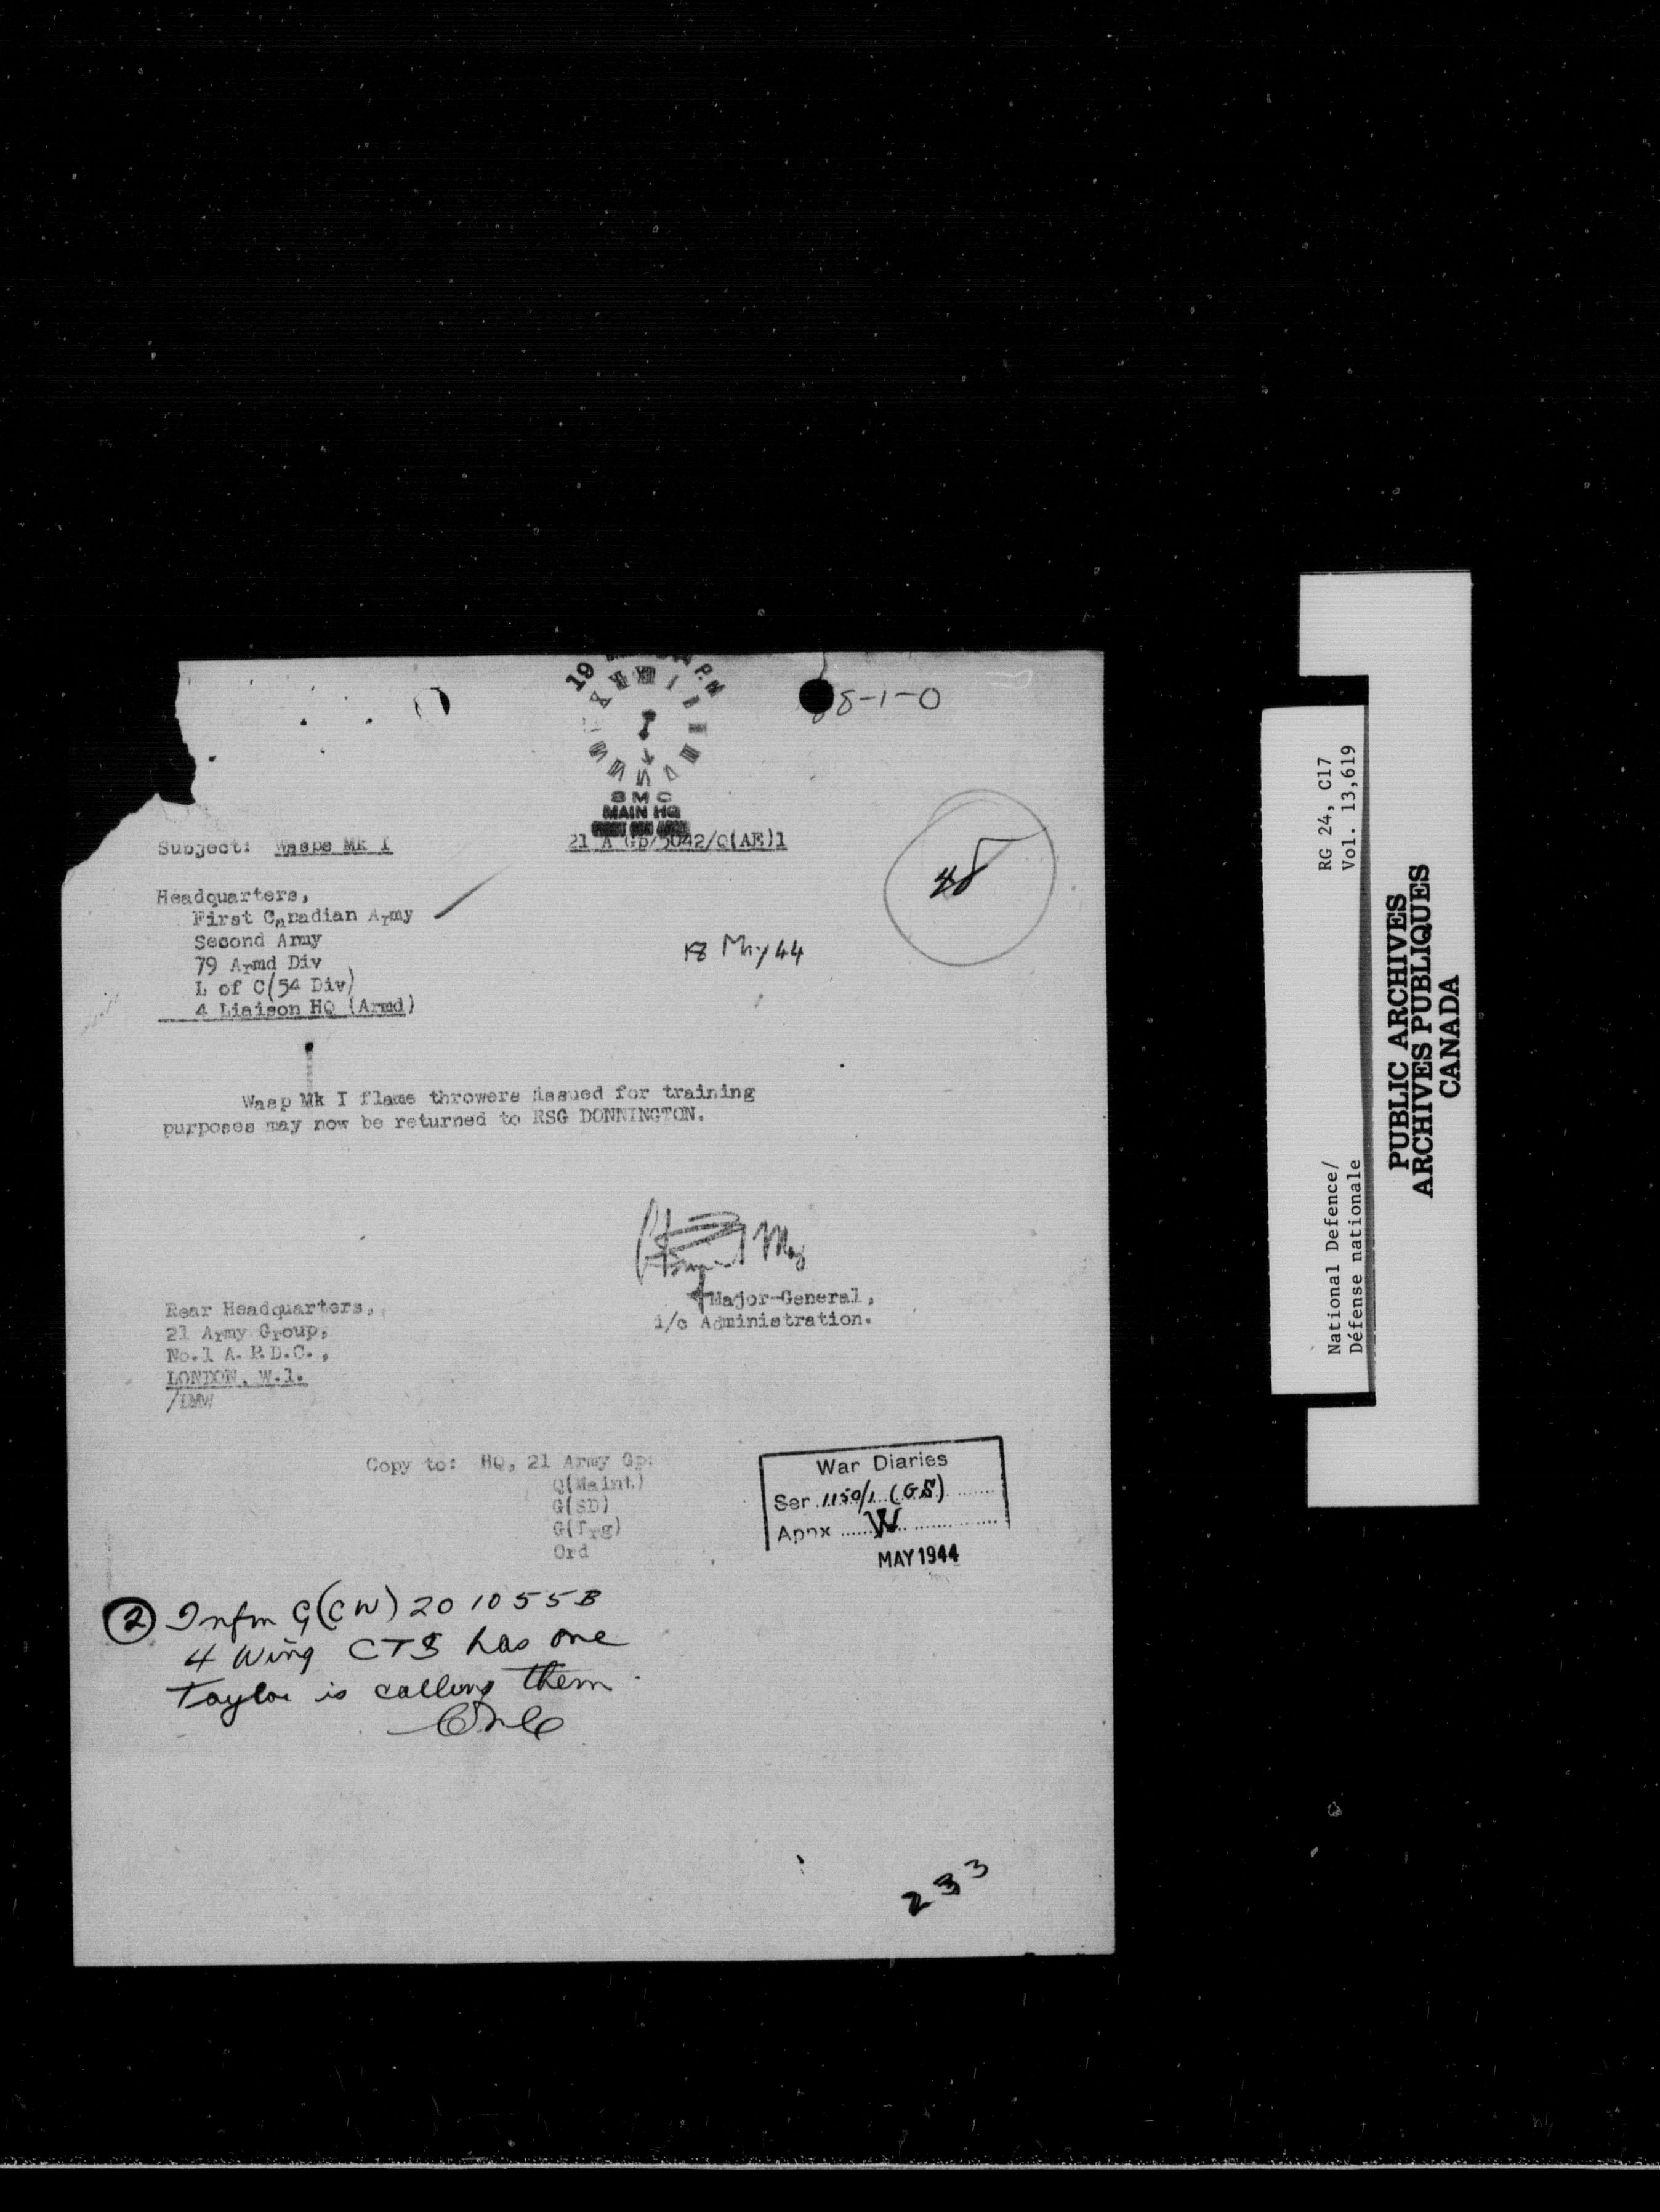 19 P.M
8-1-0
S M C
MAIN HQ
Subject: Wasps Mk I
21 A Gp/5042/Q(AE)1
48
Headquarters,
First Canadian Army
Second Army
79 Armd Div
L of C(54 Div)
4 Liaison HQ (Armd)
18 May 44
Wasp Mk I flame throwers issued for training
purposes may now be returned to RSG DONNINGTON.
Major-General,
i/c Administration.
Rear Headquarters,
21 Army Group,
No.1 A.P.D.C.,
LONDON, W.1.
/LMW
Copy to: HQ, 21 Army Gp:
Q(Maint)
G(SD)
G(Trg)
Ord
War Diaries
Ser 1150/1 (GS)
Appx W
MAY 1944
② Infm G(CW) 201055B
4 Wing CTS has one
Taylor is calling them
233
RG 24, C17
Vol. 13,619
National Defence/
Défense nationale
PUBLIC ARCHIVES
ARCHIVES PUBLIQUES
CANADA